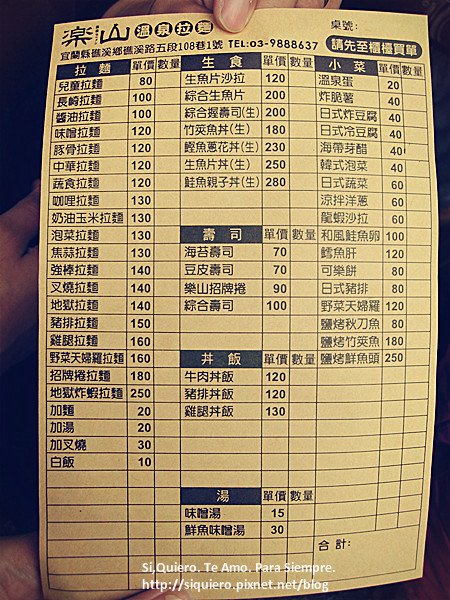 楽山 溫泉拉麵
桌號:
宜蘭縣礁溪鄉礁溪路五段108巷1號 TEL:03-9888637 請先至櫃檯買單
拉麵 單價 數量
兒童拉麵 80
長崎拉麵 100
醬油拉麵 100
味噌拉麵 120
豚骨拉麵 120
中華拉麵 120
蔬食拉麵 120
咖哩拉麵 130
奶油玉米拉麵 130
泡菜拉麵 130
焦蒜拉麵 130
強棒拉麵 140
叉燒拉麵 140
地獄拉麵 140
豬排拉麵 150
雞腿拉麵 160
野菜天婦羅拉麵 160
招牌捲拉麵 180
地獄炸蝦拉麵 250
加麵 20
加湯 20
加叉燒 30
白飯 10
生食 單價 數量
生魚片沙拉 120
綜合生魚片 200
綜合握壽司(生) 200
竹筴魚丼(生) 180
鰹魚蔥花丼(生) 230
生魚片丼(生) 250
鮭魚親子丼(生) 280
壽司 單價 數量
海苔壽司 70
豆皮壽司 70
樂山招牌捲 90
綜合壽司 100
丼飯 單價 數量
牛肉丼飯 120
豬排丼飯 120
雞腿丼飯 130
湯 單價 數量
味噌湯 15
鮮魚味噌湯 30
小菜 單價 數量
溫泉蛋 20
炸脆薯 40
日式炸豆腐 40
日式冷豆腐 40
海帶芽醋 40
韓式泡菜 40
日式蔬菜 60
涼拌洋蔥 60
龍蝦沙拉 60
和風鮭魚卵 100
鱈魚肝 120
可樂餅 80
日式豬排 80
野菜天婦羅 120
鹽烤秋刀魚 80
鹽烤竹筴魚 180
鹽烤鮮魚頭 250
合計:
Si,Quiero. Te Amo. Para Siempre.
http://siquiero.pixnet.net/blog